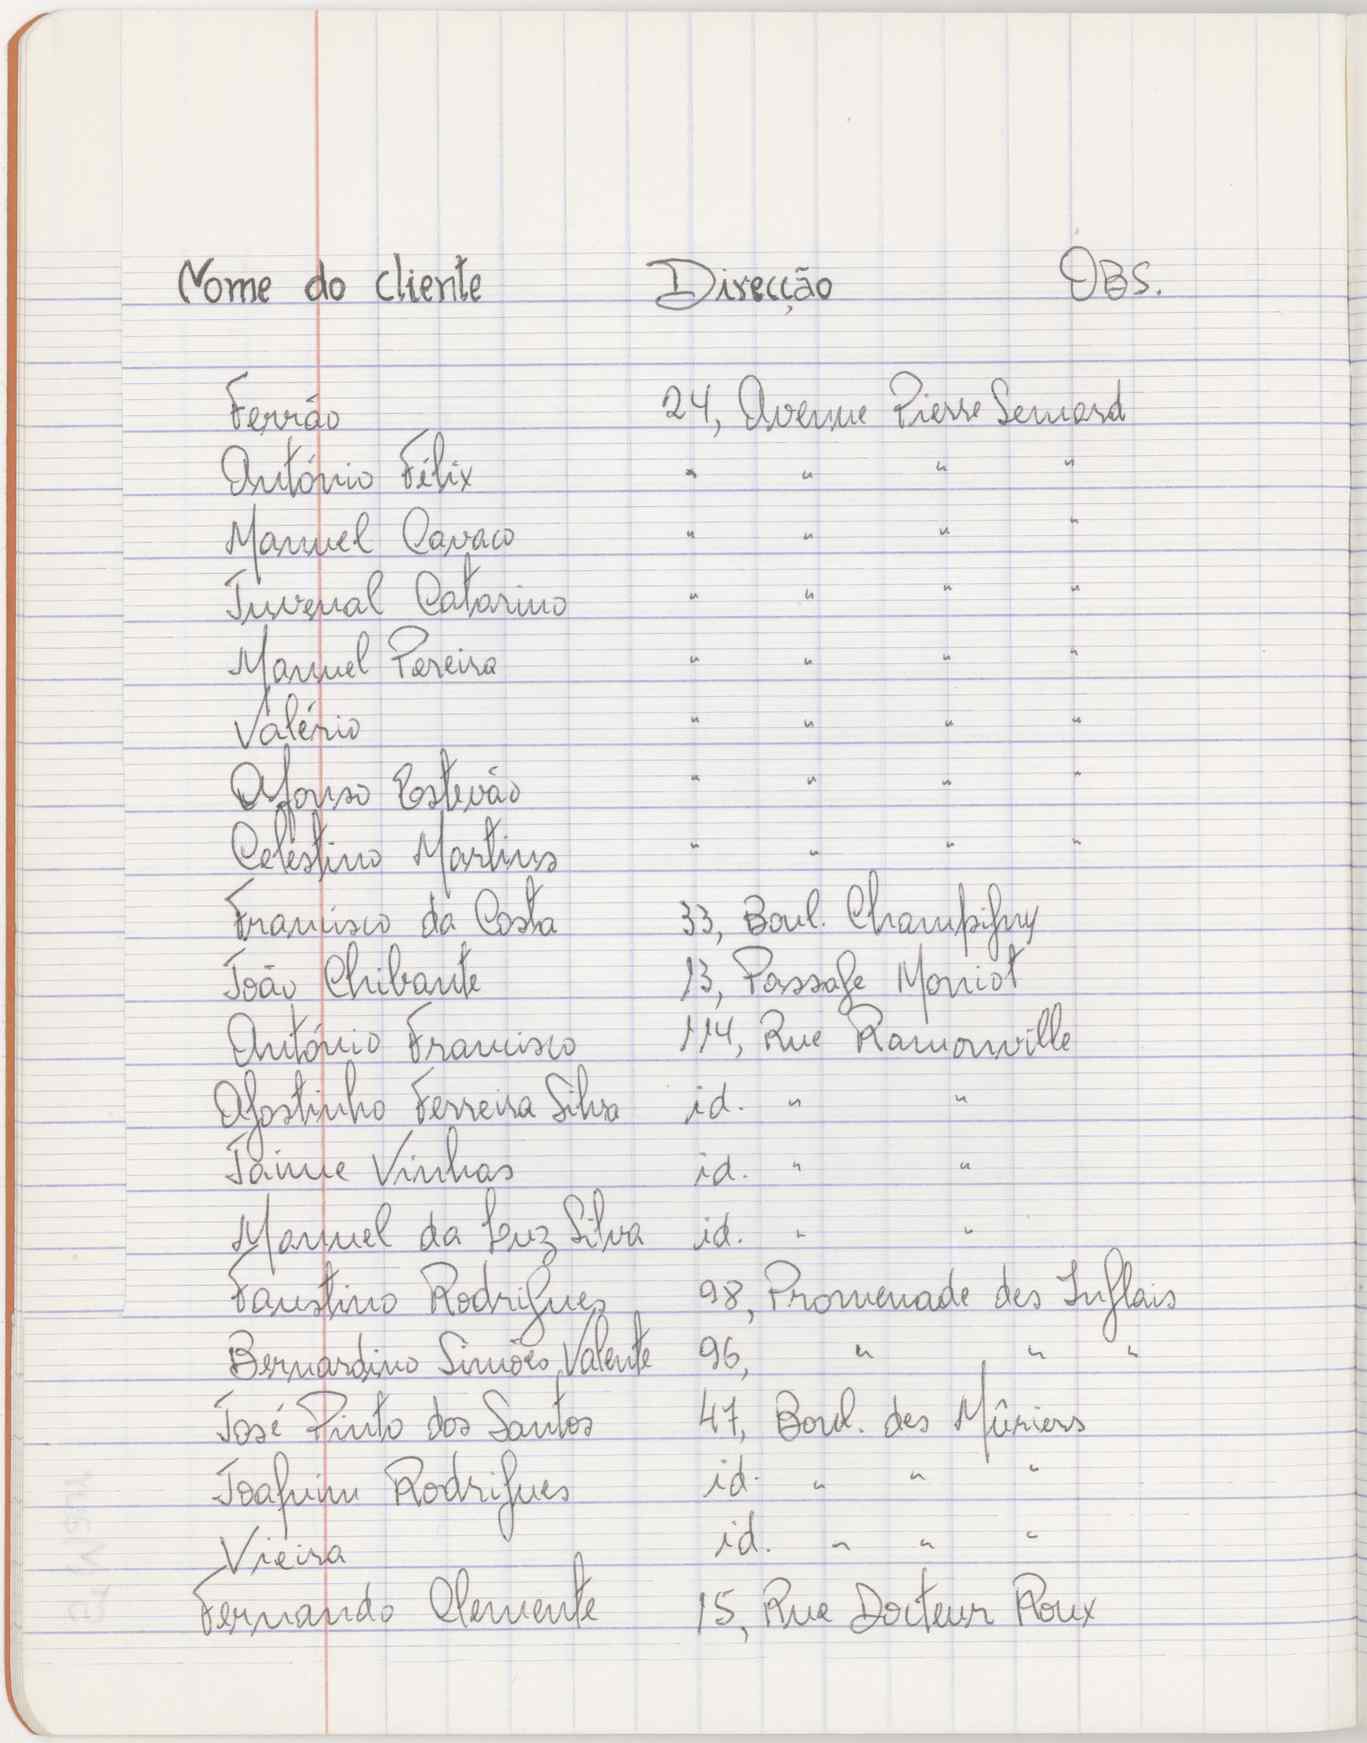 Nome do cliente Direcção OBS.
Ferrão 24, Avenue Pierre Semard
António Félix " " " "
Manuel Cavaco " " " "
Juvenal Catarino " " " "
Manuel Pereira " " " "
Valério " " " "
Afonso Estevão " " " "
Celestino Martins " " " "
Francisco da Costa 33, Boul. Champigny
João Chibante 13, Passage Moniot
António Francisco 114, Rue Ramonville
Agostinho Ferreira Silva id. " "
Jaime Vinhas id. " "
Manuel da Luz Silva id. " "
Faustino Rodrigues 98, Promenade des Inglais
Bernardino Simões Valente 96, " " "
José Pinto dos Santos 47, Boul. des Mûriers
Joaquim Rodrigues id. " " "
Vieira id. " " "
Fernando Clemente 15, Rue Docteur Roux